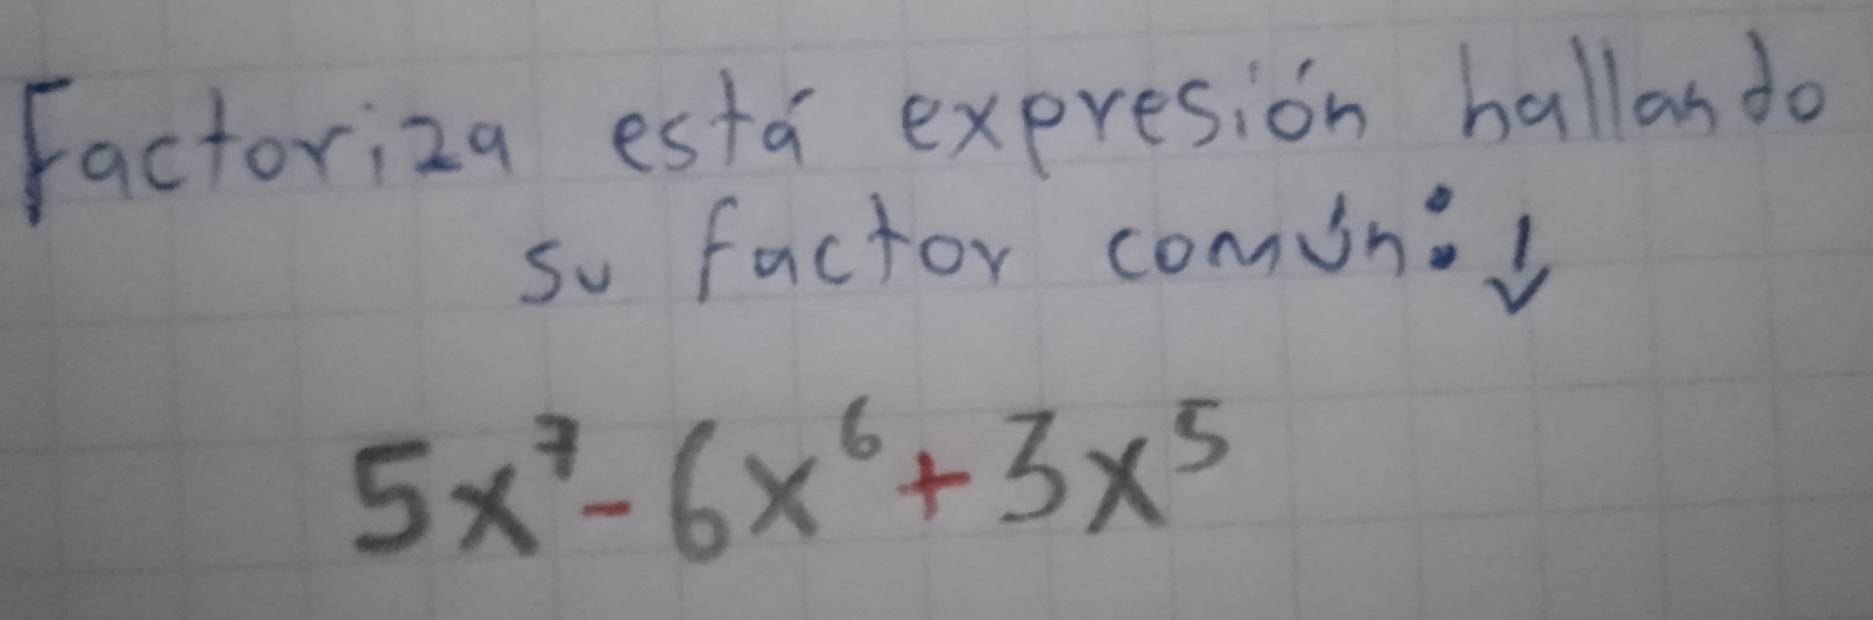 Factoriza está expresión hallando
su factor común: ↓
5x⁷ - 6x⁶ + 3x⁵